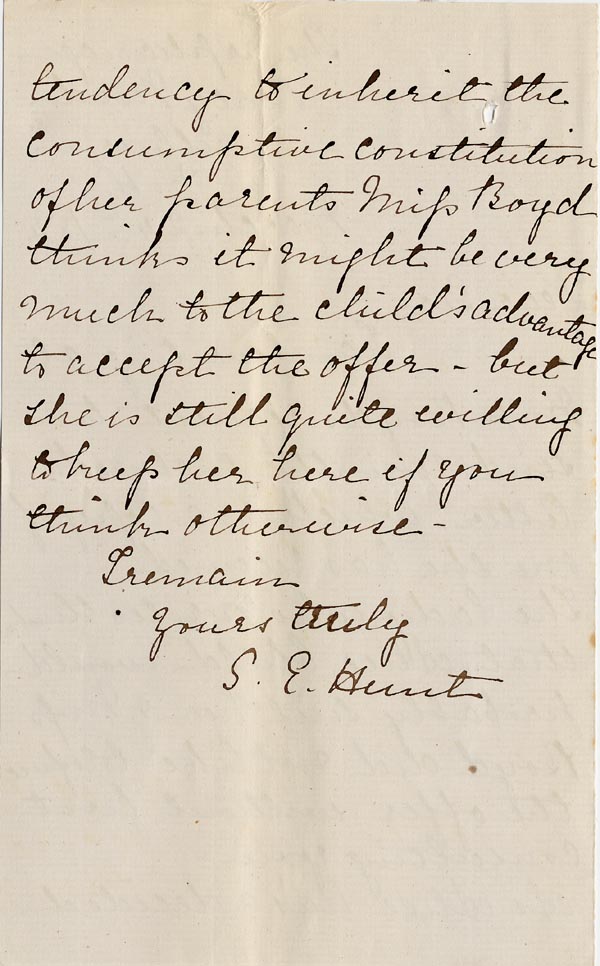 tendency to inherit the
consumptive constitution
of her parents Miss Boyd
thinks it might be very
much to the child's advantage
to accept the offer - but
she is still quite willing
to keep her here if you
think otherwise -
I remain
Yours truly
S. E. Hunt